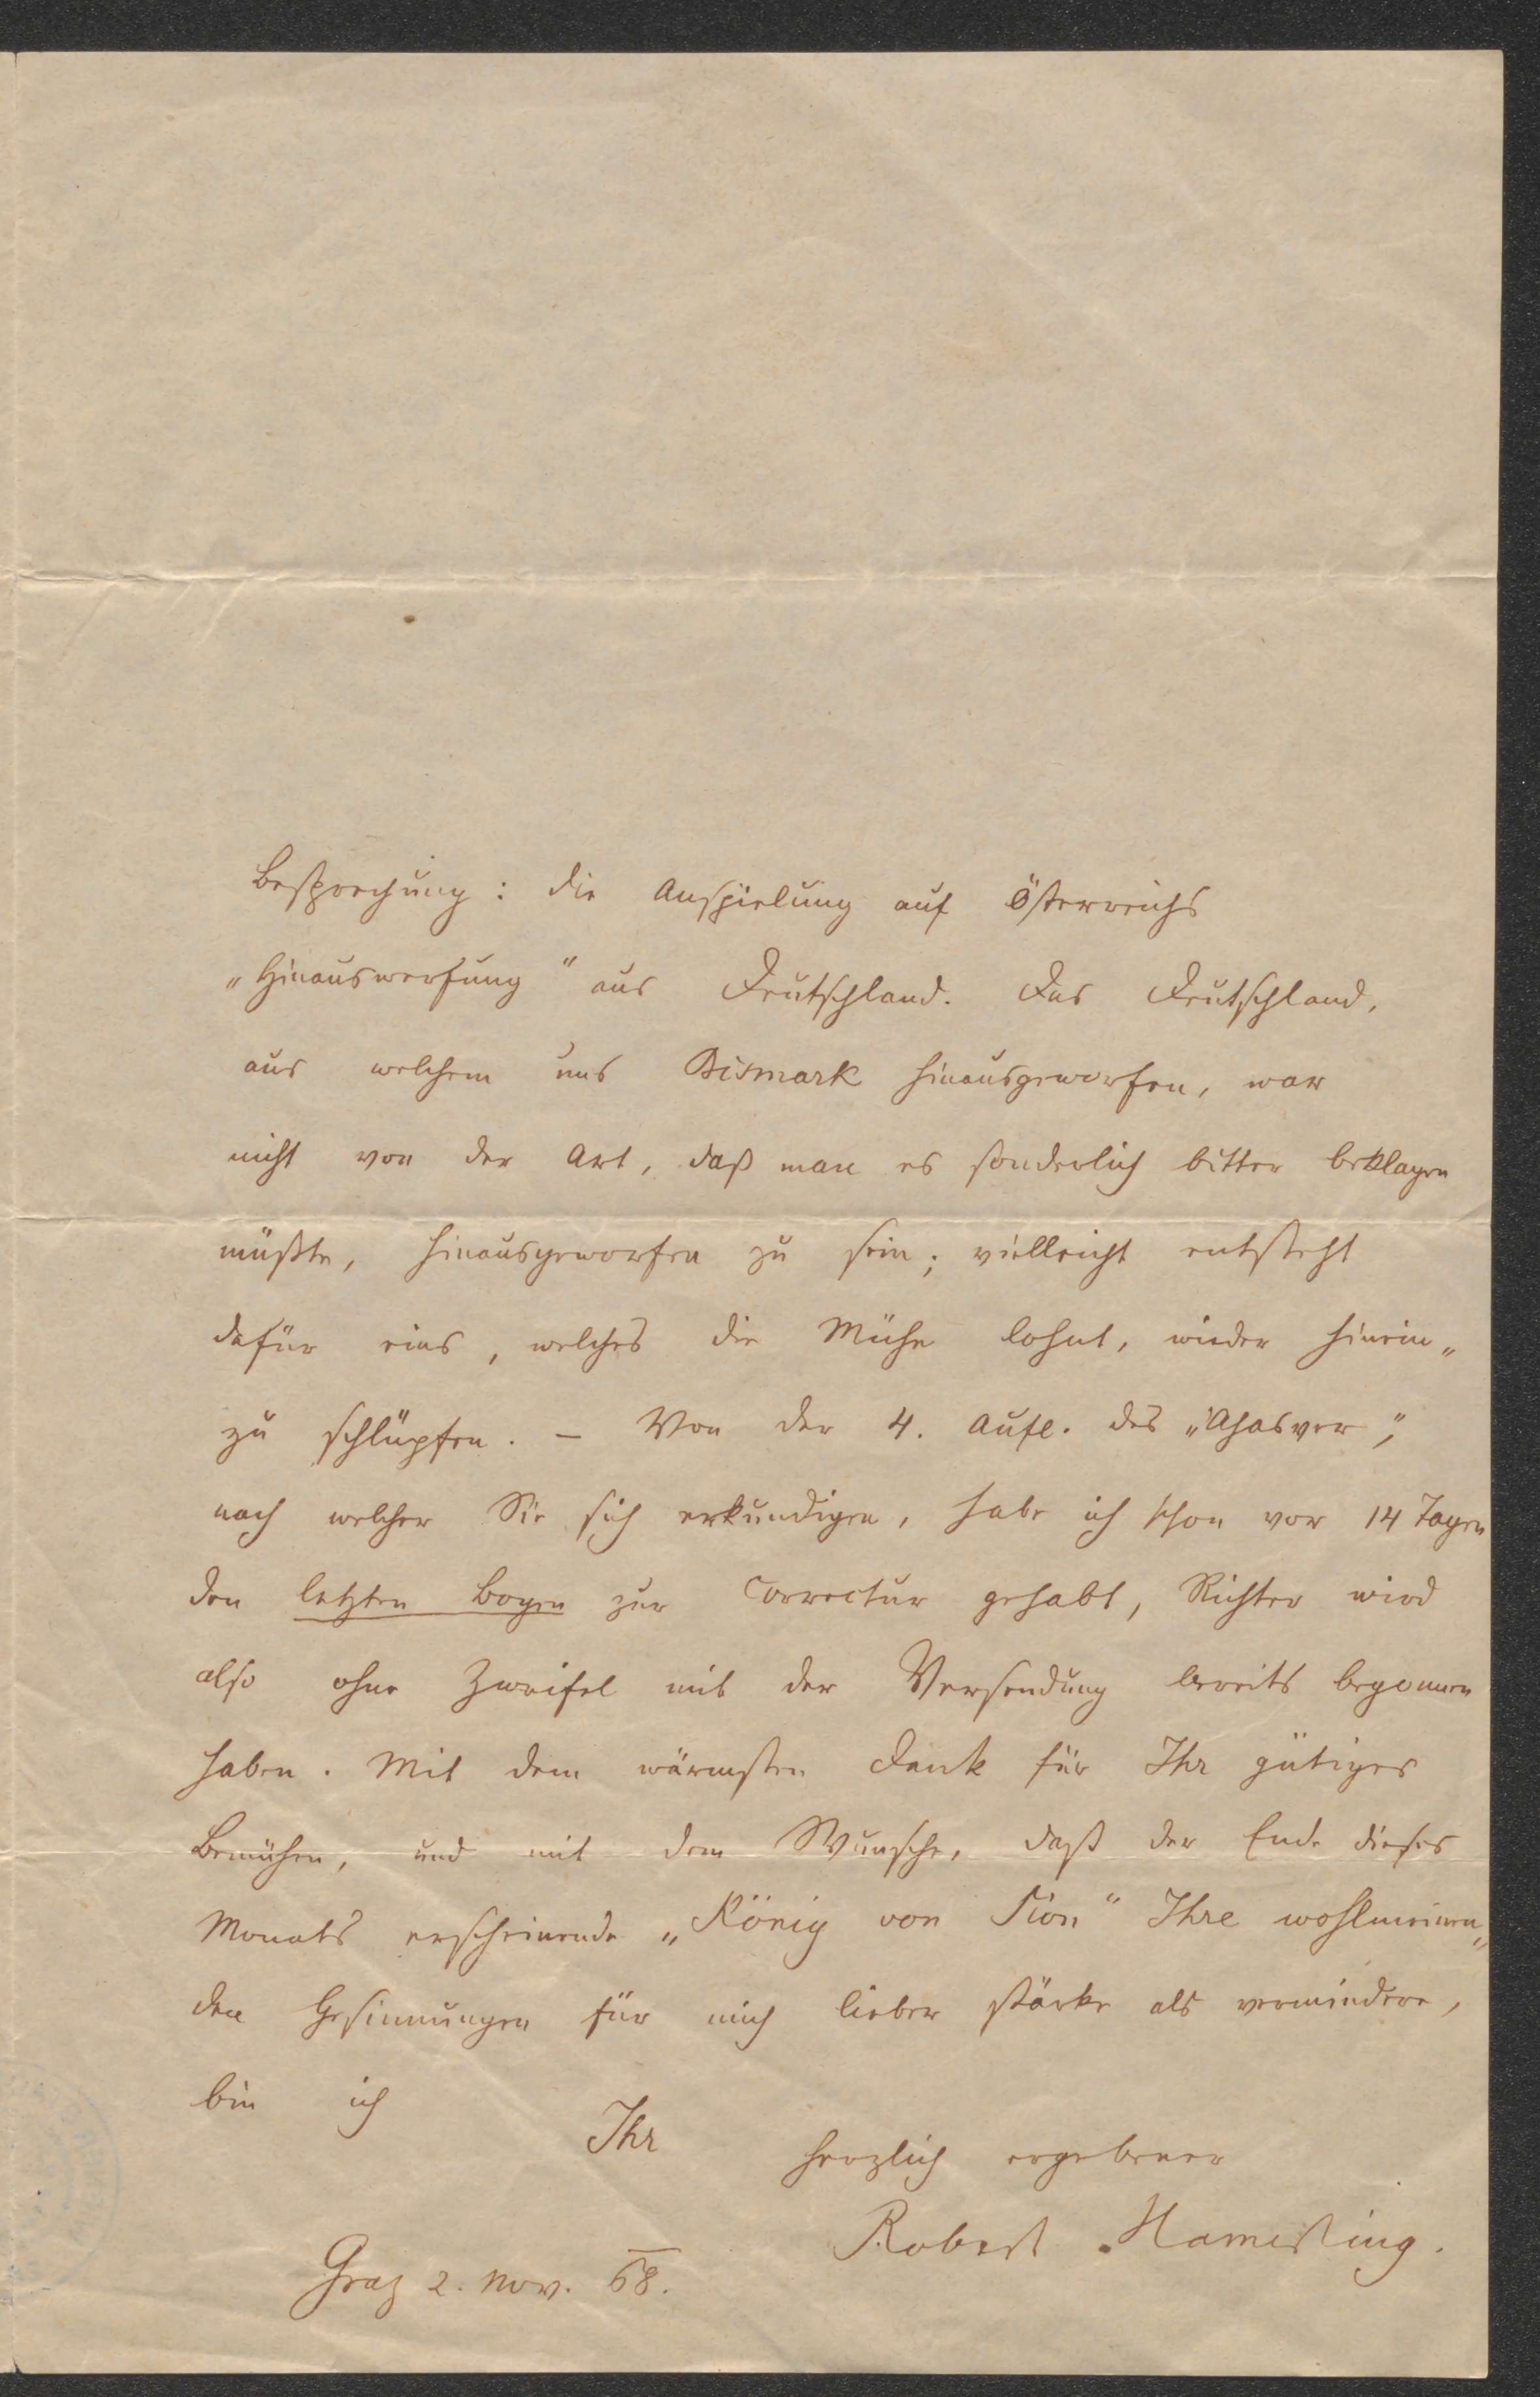 Besprechung: die Anspielung auf Österreichs
„Hinauswerfung" aus Deutschland. Das Deutschland,
aus welchem uns Bismark hinausgeworfen, war
nicht von der Art, daß man es sonderlich bitter beklagen
müßte, hinausgeworfen zu sein; vielleicht entsteht
dafür eins, welches die Mühe lohnt, wieder hinein„
zu schlüpfen. – Von der 4. Aufl. des „Ahasver",
nach welcher Sie sich erkundigen, habe ich schon vor 14 Tagen
den letzten Bogen zur Correctur gehabt, Richter wird
also ohne Zweifel mit der Versendung bereits begonnen
haben. Mit dem wärmsten Dank für Ihr gütiges
Bemühen, und mit dem Wunsche, daß der Ende dieses
Monats erscheinende „König von Sion" Ihre wohlmeinen„
den Gesinnungen für mich lieber stärke als vermindere,
bin ich
Ihr herzlich ergebener
Robert Hamerling.
Graz 2. Nov. 68.